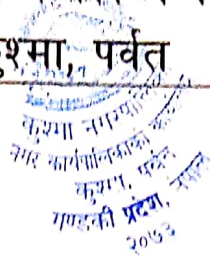 श्मा, पर्वत
कुश्मा नगरपालिका
नगर कार्यपालिकाको
कुश्मा, पर्वत
गण्डकी प्रदेश, नेपाल
२०७३